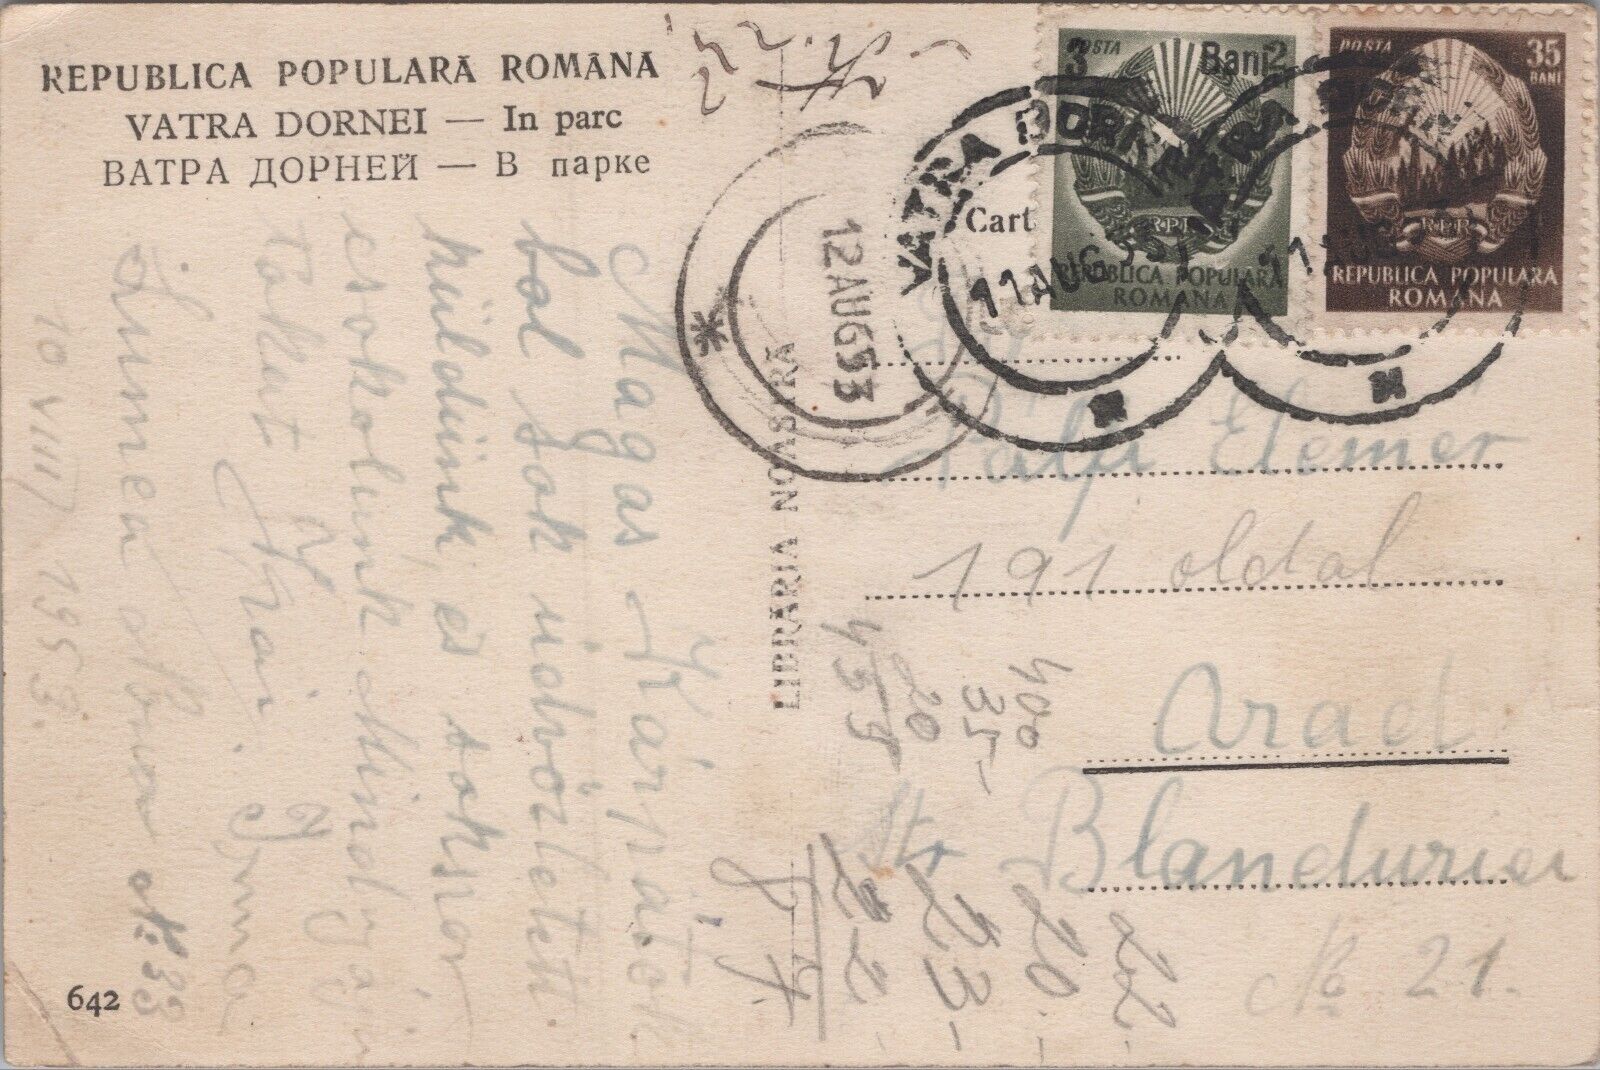 REPUBLICA POPULARĂ ROMÂNA
VATRA DORNEI — In parc
ВАТРА ДОРНЕЙ — В парке
POSTA
3 Bani 2
R.P.R
REPUBLICA POPULARA
ROMANA
POSTA 35
BANI
R.P.R
REPUBLICA POPULARA
ROMANA
VATRA DORNEI
11 AUG 53
12 AUG 53
Cart
LIBRĂRIA NOASTRĂ
Magas Kárpátok
ból sok üdvözletet
küldünk és sokszor
csokolunk
10 VIII 1953.
Pálfi Elemér
191 oldal
Arad
Str Blanduziei
№ 21.
400
35-
20
455
22-
20.-
23-
22-
87.
642